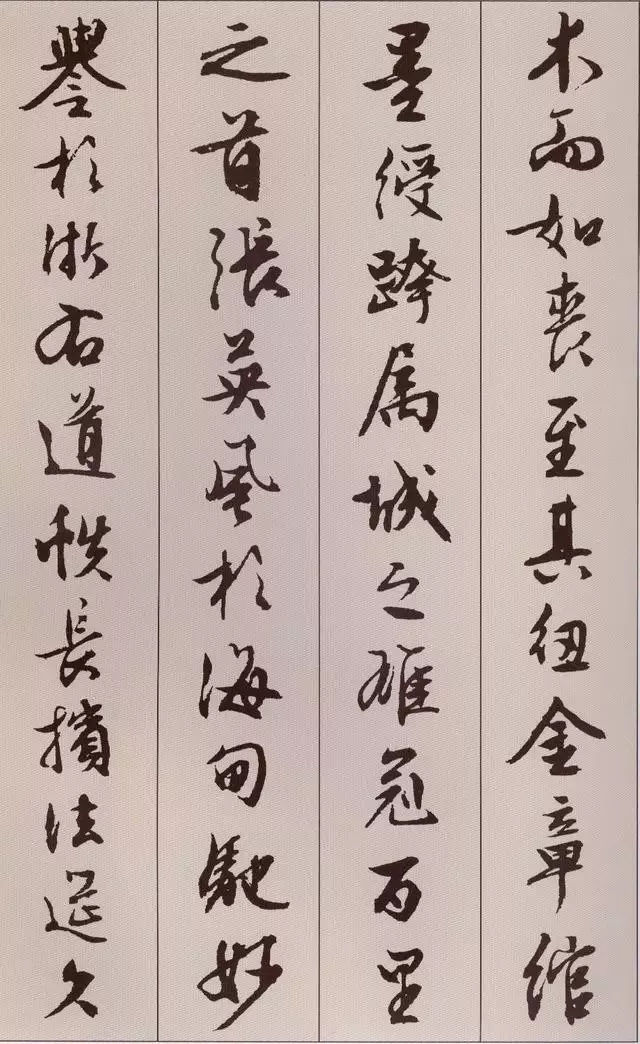 木而如喪至其紐金章綰
墨綬跨属城之雄冠百里
之首張英風於海甸馳妙
譽於浙右道帙長擯法筵久